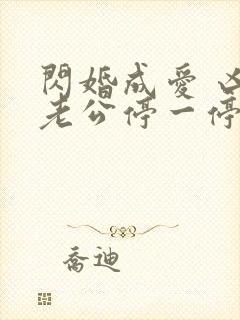 閃婚成愛 凶
老公停一停
喬迪